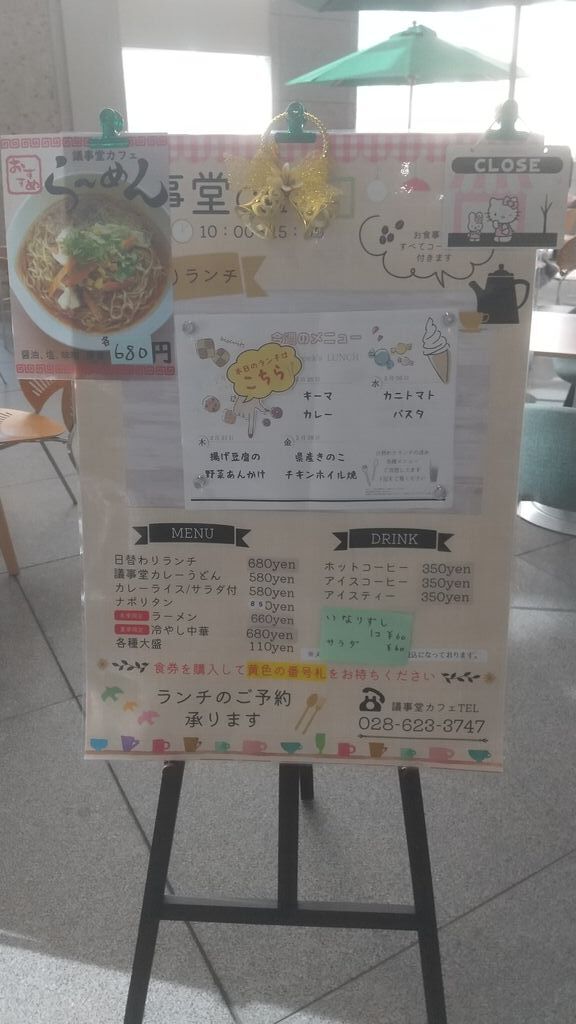 議事堂カフェ
おすすめ
らーめん
醤油、塩、味噌
各680円
CLOSE
事堂
10:00
ランチ
お食事
すべてコー
付きます
今週のメニュー
LUNCH
biscuits
本日のランチは
こちら
キーマ
カレー
水
カニトマト
パスタ
木
揚げ豆腐の
野菜あんかけ
金
県産きのこ
チキンホイル焼
MENU
日替わりランチ 680yen
議事堂カレーうどん 580yen
カレーライス/サラダ付 580yen
ナポリタン
ラーメン 660yen
冷やし中華 680yen
各種大盛 110yen
DRINK
ホットコーヒー 350yen
アイスコーヒー 350yen
アイスティー 350yen
いなりずし
1コ ¥60
サラダ ¥60
込になっております。
食券を購入して黄色の番号札をお持ちください
ランチのご予約
承ります
議事堂カフェTEL
028-623-3747